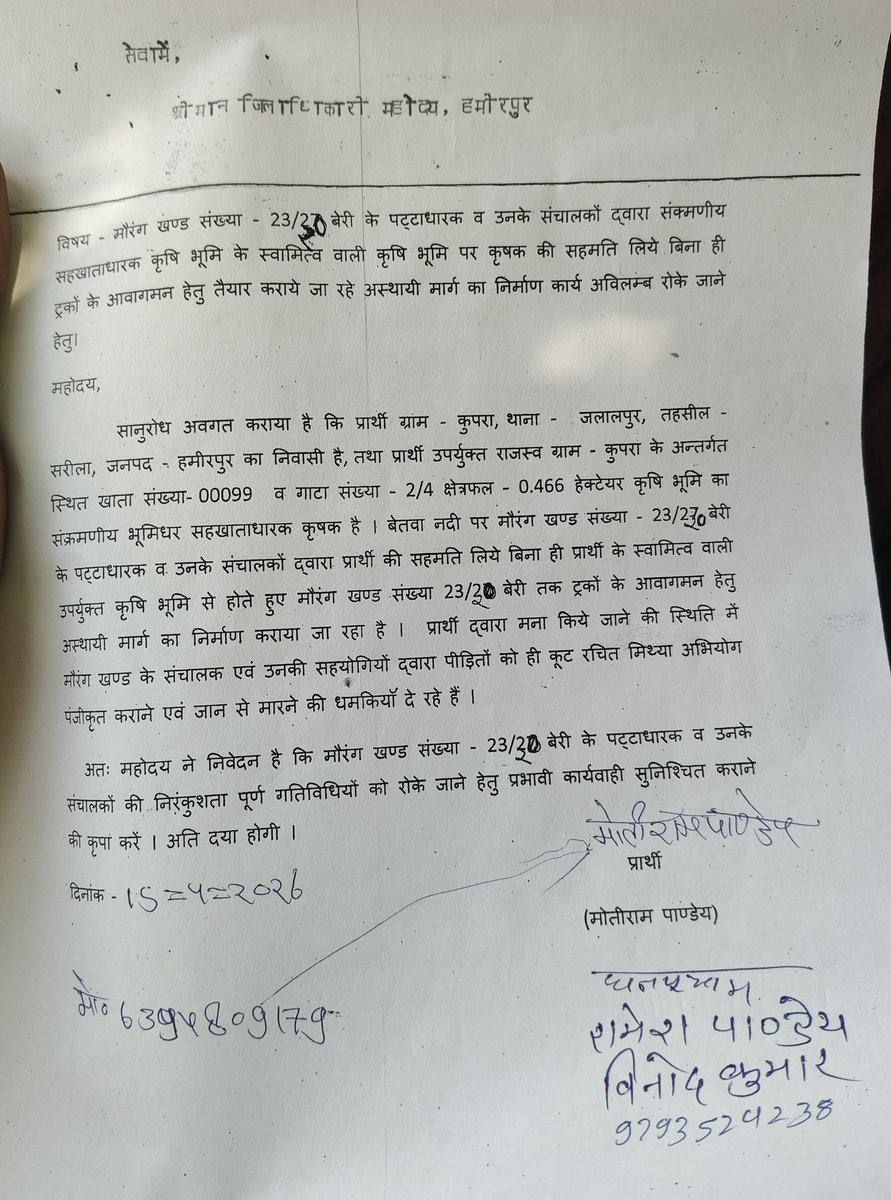 सेवामें,
श्रीमान जिलाधिकारी महोदय, हमीरपुर
विषय - मौरंग खण्ड संख्या - 23/20 बेरी के पट्टाधारक व उनके संचालकों द्वारा संक्मणीय
सहखाताधारक कृषि भूमि के स्वामित्व वाली कृषि भूमि पर कृषक की सहमति लिये बिना ही
ट्रकों के आवागमन हेतु तैयार कराये जा रहे अस्थायी मार्ग का निर्माण कार्य अविलम्ब रोके जाने
हेतु।
महोदय,
सानुरोध अवगत कराया है कि प्रार्थी ग्राम - कुपरा, थाना - जलालपुर, तहसील -
सरीला, जनपद - हमीरपुर का निवासी है, तथा प्रार्थी उपर्युक्त राजस्व ग्राम - कुपरा के अन्तर्गत
स्थित खाता संख्या- 00099 व गाटा संख्या - 2/4 क्षेत्रफल - 0.466 हेक्टेयर कृषि भूमि का
संक्रमणीय भूमिधर सहखाताधारक कृषक है । बेतवा नदी पर मौरंग खण्ड संख्या - 23/20 बेरी
के पट्टाधारक व उनके संचालकों द्वारा प्रार्थी की सहमति लिये बिना ही प्रार्थी के स्वामित्व वाली
उपर्युक्त कृषि भूमि से होते हुए मौरंग खण्ड संख्या 23/20 बेरी तक ट्रकों के आवागमन हेतु
अस्थायी मार्ग का निर्माण कराया जा रहा है । प्रार्थी द्वारा मना किये जाने की स्थिति में
मौरंग खण्ड के संचालक एवं उनकी सहयोगियों द्वारा पीड़ितों को ही कूट रचित मिथ्या अभियोग
पंजीकृत कराने एवं जान से मारने की धमकियाँ दे रहे हैं ।
अतः महोदय ने निवेदन है कि मौरंग खण्ड संख्या - 23/20 बेरी के पट्टाधारक व उनके
संचालकों की निरंकुशता पूर्ण गतिविधियों को रोके जाने हेतु प्रभावी कार्यवाही सुनिश्चित कराने
की कृपा करें । अति दया होगी ।
मोतीराम पाण्डेय
प्रार्थी
दिनांक - 15=4=2026
(मोतीराम पाण्डेय)
घनश्याम
मो०
रामेश पाण्डेय
विनोद कुमार
9793524238